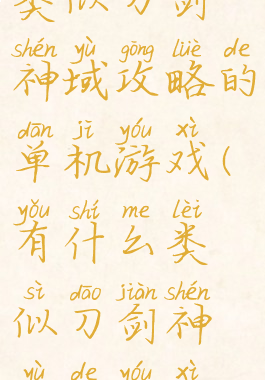 类似刀剑
shén yù gōng lüè de
神域攻略的
dān jī yóu xì
单机游戏(
yǒu shí me lèi
有什么类
sì dāo jiàn shén
似刀剑神
yù de yóu xì